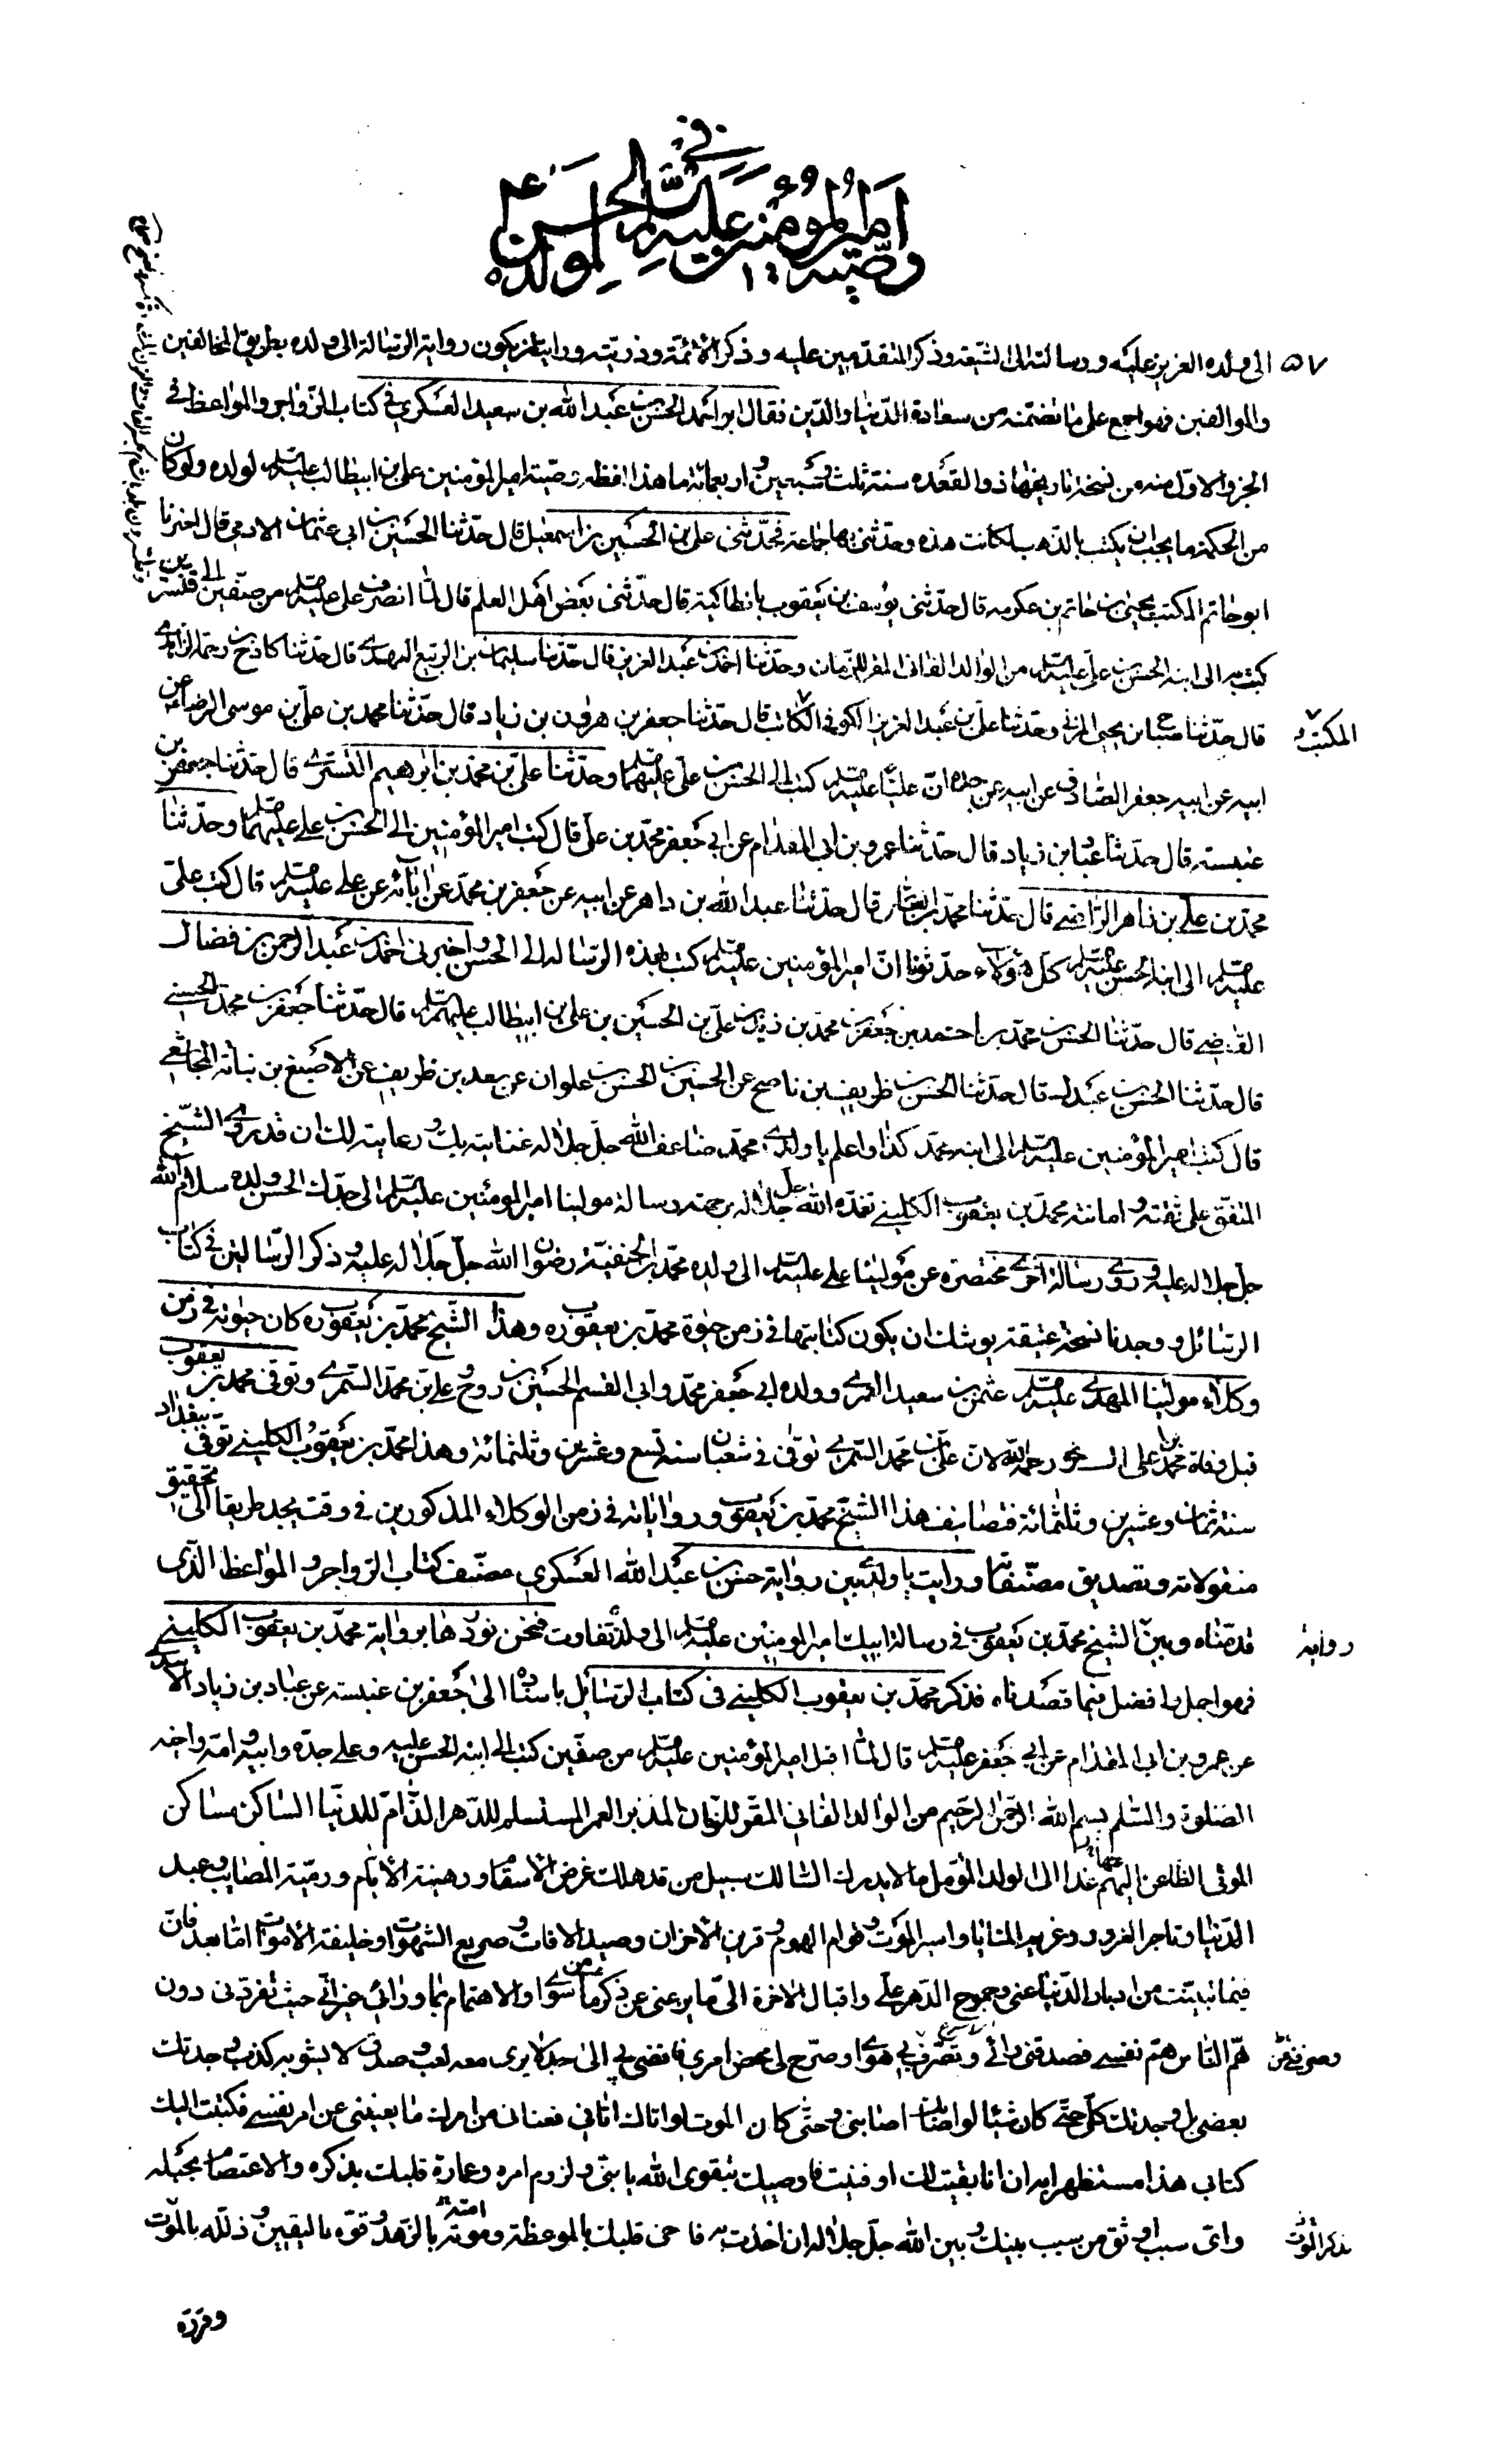 في
وصية امير المؤمنين عليه السلام لولده الحسن ع
٥٧ الى ولده العزيز عليه ورسالته الى الشيعة وذكر المتقدمين عليه وذكر الائمة من ذريته ورايت ان يكون رواية الرسالة الى ولده بطريق المخالفين
والموالفين فهو اجمع على ما تضمنته من سعادة الدنيا والدين فقال ابو احمد الحسن بن عبد الله بن سعيد العسكري في كتاب الزواجر والمواعظ في
الجزء الاول منه من نسخة تاريخها ذو القعدة سنة ثلث وسبعين واربعمائة ما هذا لفظه وصية امير المؤمنين علي بن ابيطالب عليه السلم لولده ولو كان
من الحكمة ما يجب ان يكتب بالذهب لكانت هذه وحدثني بها جماعة فحدثني علي بن الحسين بن اسمعيل قال حدثنا الحسين بن ابي عثمان الادمي قال اخبرنا
ابو حاتم المكتب يحيى بن حاتم بن عكرمه قال حدثني يوسف بن يعقوب بانطاكية قال حدثني بعض اهل العلم قال لما انصرف علي عليه السلم من صفين الى قنسرين
كتب به الى ابنه الحسن بن علي عليه السلم من الوالد الفان المقر للزمان وحدثنا احمد بن عبد العزيز قال حدثنا سليمان بن الربيع النهدي قال حدثنا كادح بن رحمة الزاهدي
قال حدثنا صباح بن يحيى المزني وحدثنا علي بن عبد العزيز الكوفي الكاتب قال حدثنا جعفر بن هرون بن زياد قال حدثنا محمد بن علي بن موسى الرضا عن
المكتب
ابيه عن ابيه جعفر الصادق عن ابيه عن جده ان عليا عليه السلم كتب الى الحسن بن علي عليهما السلم وحدثنا علي بن محمد بن ابرهيم التستري قال حدثنا جعفر بن
عنبسة قال حدثنا عباد بن زياد قال حدثنا عمرو بن ابي المقدام عن ابي جعفر محمد بن علي قال كتب امير المؤمنين الى الحسن بن علي عليهما السلم وحدثنا
محمد بن علي بن زاهر الرازي قال حدثنا محمد بن العباس قال حدثنا عبد الله بن داهر عن ابيه عن جعفر بن محمد عن ابائه عن علي عليه السلم قال كتب علي
عليه السلم الى ابنه الحسن عليه السلم كل هؤلاء حدثونا ان امير المؤمنين عليه السلم كتب بهذه الرسالة الى الحسن واخبرني احمد بن عبد الرحمن بن فضال
القاضي قال حدثنا الحسن بن محمد بن احمد بن جعفر بن محمد بن زيد بن علي بن الحسين بن علي بن ابيطالب عليهم السلم قال حدثنا جعفر بن محمد الحسيني
قال حدثنا الحسن بن عبدل قال حدثنا الحسن بن ظريف بن ناصح عن الحسين بن علوان عن سعد بن ظريف عن الاصبغ بن نباتة المجاشعي
قال كتب امير المؤمنين عليه السلم الى ابنه محمد كذا واعلم يا ولدي محمد ضاعف الله جل جلاله عنايته بك ورعايته لك ان قد روى الشيخ
المتفق على ثقته وامانته محمد بن يعقوب الكليني تغمده الله جل جلاله برحمته رسالة مولينا امير المؤمنين عليه السلم الى جدك الحسن ولده سلام الله
جل جلاله عليه وروى رسالة اخرى مختصرة عن مولينا علي عليه السلم الى ولده محمد بن الحنفية رضوان الله جل جلاله عليه وذكر الرسالتين في كتاب
الرسائل ووجدنا نسخة عتيقة يوشك ان يكون كتابتها في زمن حيوة محمد بن يعقوب ره وهذا الشيخ محمد بن يعقوب كان حيوته في زمن
وكلاء مولينا المهدي عليه السلم عثمن بن سعيد العمري وولده ابي جعفر محمد وابي القسم الحسين بن روح وعلي بن محمد السمري وتوفي محمد بن يعقوب
قبل وفاة علي بن محمد السمري رحمه الله لان علي بن محمد السمري توفي في شعبان سنة تسع وعشرين وثلثمائة وهذا محمد بن يعقوب الكليني توفي ببغداد
سنة ثمان وعشرين وثلثمائة فتصانيف هذا الشيخ محمد بن يعقوب ورواياته في زمن الوكلاء المذكورين في وقت يجد طريقا الى تحقيق
منقولاته وتصديق مصنفاته ورايت يا ولدي بين رواية حسن بن عبد الله العسكري مصنف كتاب الزواجر والمواعظ الذي
قدمناه وبين الشيخ محمد بن يعقوب في رسالة ابيك امير المؤمنين عليه السلم الى ولده تفاوت فنحن نوردها برواية محمد بن يعقوب الكليني
رواية
فهو اجمل وافضل فيما قصدناه فذكر محمد بن يعقوب الكليني في كتاب الرسائل باسناده الى جعفر بن عنبسة عن عباد بن زياد الاسدي
عن عمرو بن ابي المقدام عن ابي جعفر عليه السلم قال لما اقبل امير المؤمنين عليه السلم من صفين كتب الى ابنه الحسن عليه وعلى جده وابيه وامه واخيه
الصلوة والسلم بسم الله الرحمن الرحيم من الوالد الفاني المقر للزمان المدبر العمر المستسلم للدهر الذام للدنيا الساكن مساكن
الموتى الظاعن اليهم غدا الى الولد المؤمل ما لا يدرك السالك سبيل من قد هلك غرض الاسقام ورهينة الايام ورمية المصايب وعبد
عنها
الدنيا وتاجر الغرور وغريم المنايا واسير الموت وقوام الهموم وقرين الاحزان وصيد الافات وصريع الشهوات وخليفة الاموات اما بعد فان
فيما تبينت من ادبار الدنيا عني وجموح الدهر علي واقبال الاخرة الي ما يرغبني عن ذكر من سواي والاهتمام بما ورائي غير اني حيث تفرد بي دون
هم الناس هم نفسي فصدقني رائي وتصرف بي هواي وصرح لي محض امري فافضى بي الى جد لا يرى معه لعب وصدق لا يشوبه كذب وجدتك
بعضي بل وجدتك كلي حتى كان شيئا لو اصابك اصابني وحتى كان الموت لو اتاك اتاني فعناني من امرك ما يعنيني عن امر نفسي فكتبت اليك
كتابي هذا مستظهرا به ان انا بقيت لك او فنيت فاوصيك بتقوى الله يا بني ولزوم امره وعمارة قلبك بذكره والاعتصام بحبله
واي سبب اوثق من سبب بينك وبين الله جل جلاله ان اخذت به فاحي قلبك بالموعظة وموته بالزهد وقوه باليقين وذلله بالموت
امته
بذكر الموت
وقرره